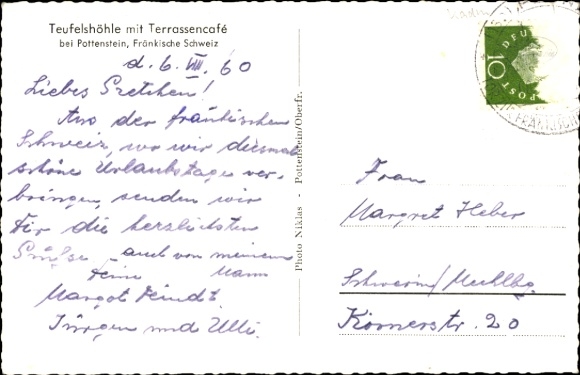 Teufelshöhle mit Terrassencafé
bei Pottenstein, Fränkische Schweiz
d. 6. VIII. 60
Liebes Gretchen!
Aus der fränkischen
Schweiz, wo wir diesmal
schöne Urlaubstage ver-
bringen, senden wir
Dir die herzlichsten
Grüße auch von meinem
Mann
Deine
Margot
Jürgen und Ulli.
Photo Niklas - Pottenstein/Oberfr.
10
POST
Frau
Margret Heber
Schwerin/Mecklbg.
Körnerstr. 20